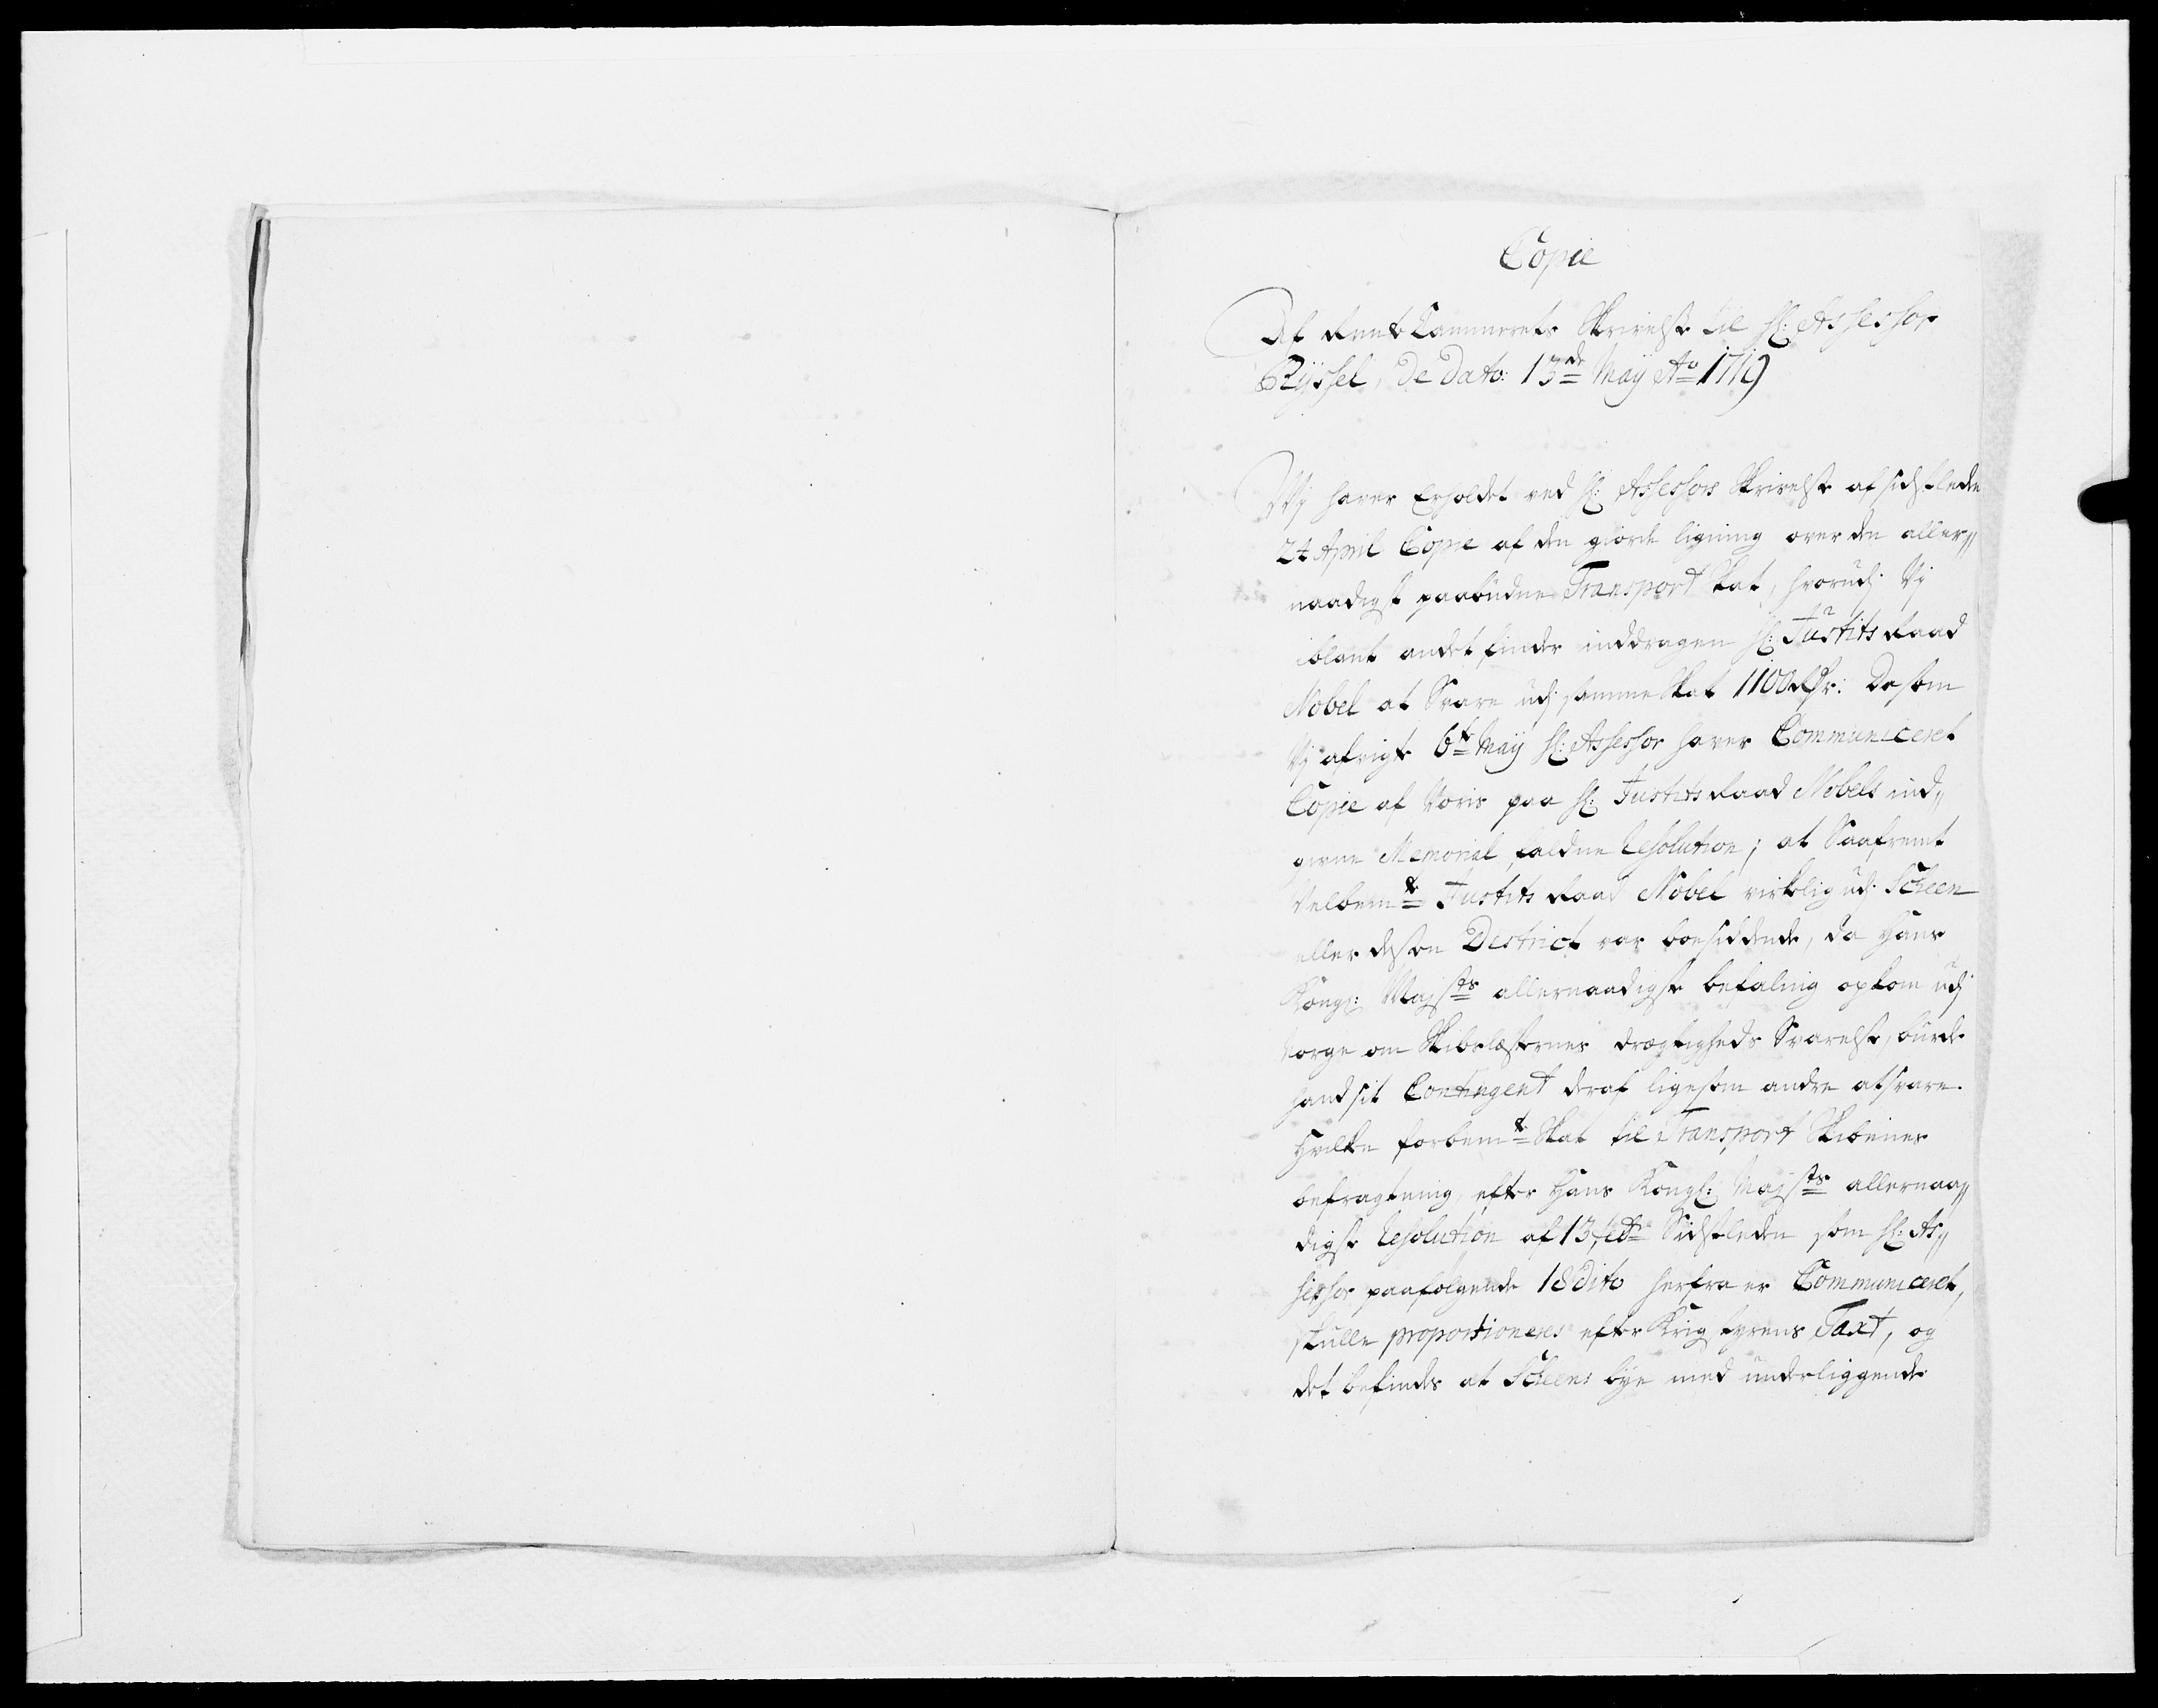 Copie
Af RenteCammerets Skrivelse til H: Assessor
Ryssel, De Dato: 13de Maij Ao 1719
Wij haver Erholdet ved H: Assessors Skrivelse af sidstleden
24 April Copie af den giorde ligning over den aller„
naadigst paabudne Transport Skat, hvorudj Vj
iblant andet finder inddragen H: Justits Raad
Nobel at Svare udj samme Skat 1100 Rdr: Da som
Vj afvigte 6te Maij H: Assessor haver Communiceret
Copie af Voris paa H: Justits Raad Nobels ind„
givne Memorial faldne Resolution; at Saafremt
Velbemte Justits Raad Nobel virkelig udj Scheen
eller dessen District var boesiddende, da Hans
Kongl: Majsts allernaadigste befaling opkom udj
Norge om Skibslæsternes drægtigheds Svarelse, burde
hand sit Contingent deraf ligesom andre at svare.
Hvilke forbemte Skat til Transport Skibenes
befragtning, efter Hans Kongl: Majsts allernaa„
digste Resolution af 13 febr Sidstleden som H: As„
sessor paafølgende 18 dito herfra er Communiceret,
skulle proportioneres efter Krigstyrens Taxt, og
det befindes at Scheens bye med underliggende